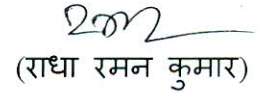 (राधा रमन कुमार)